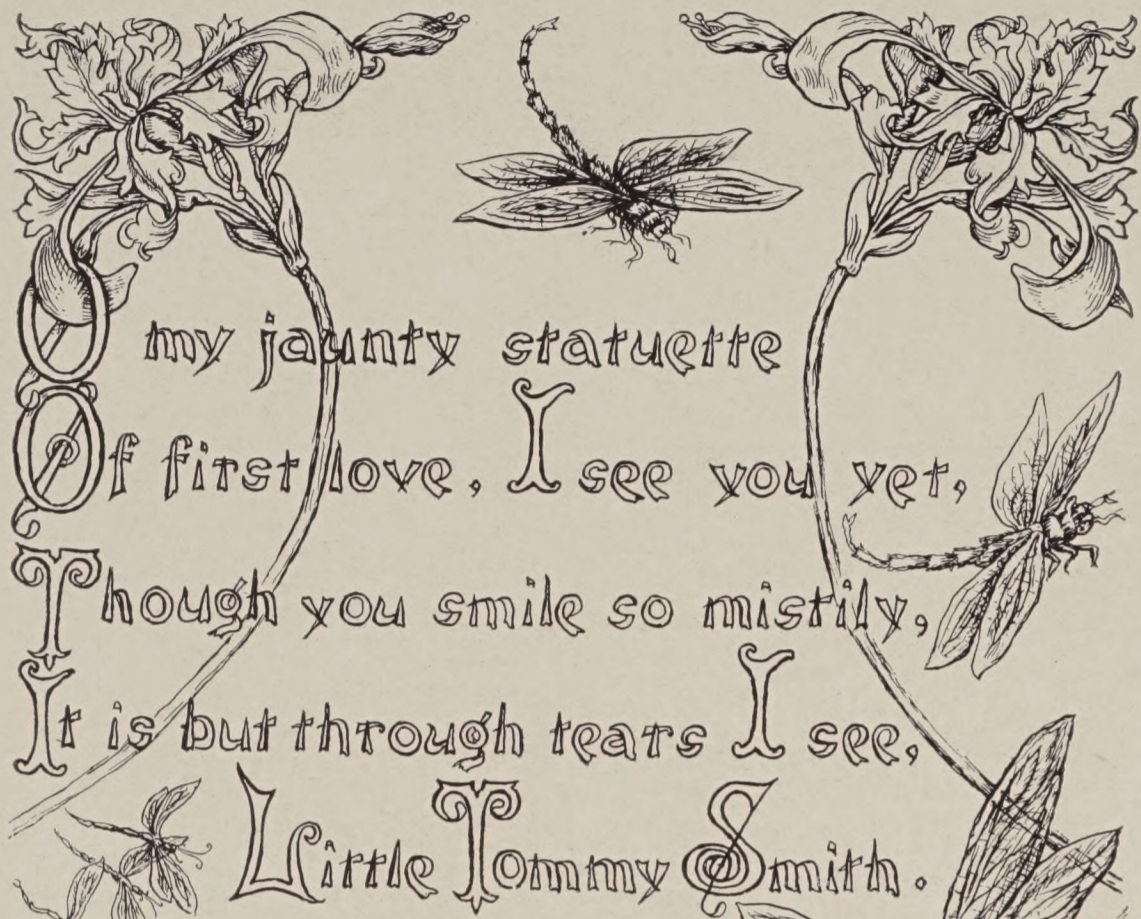 O my jaunty statuette
Of first love, I see you yet,
Though you smile so mistily,
It is but through tears I see,
Little Tommy Smith.